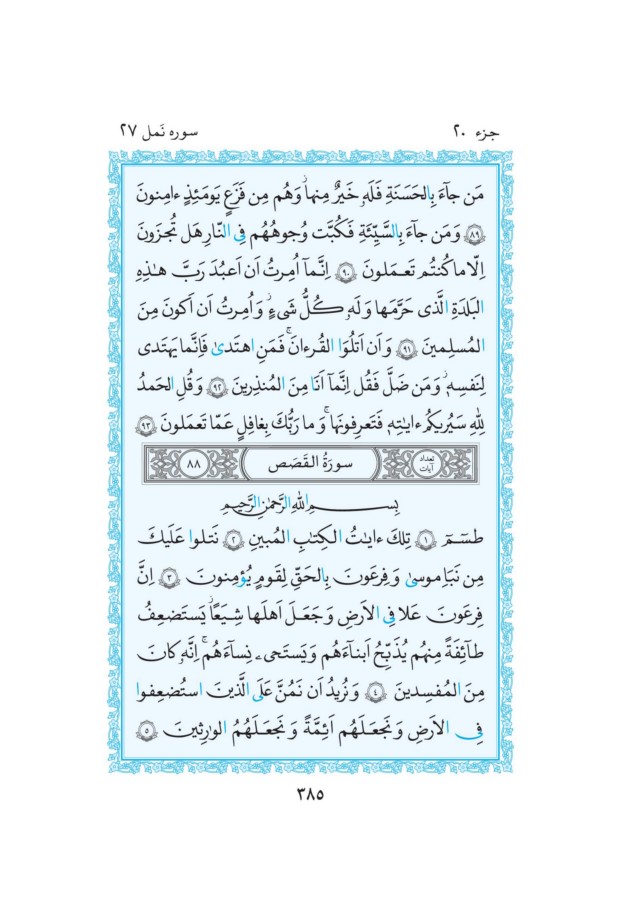 جزء ۲۰
سوره نَمل ۲۷
مَن جآءَ بِالحَسَنَةِ فَلَهٗ خَيرٌ مِنهاۚ وَهُم مِن فَزَعٍ يَومَئِذٍ ءامِنونَ
﴿۸۹﴾ وَمَن جآءَ بِالسَّيِّئَةِ فَكُبَّت وُجوهُهُم فِى النّارِ هَل تُجزَونَ
اِلّا ما كُنتُم تَعمَلونَ ﴿۹۰﴾ اِنَّمآ اُمِرتُ اَن اَعبُدَ رَبَّ هٰذِهِ
البَلدَةِ الَّذى حَرَّمَها وَلَهٗ كُلُّ شَىءٍۚ وَاُمِرتُ اَن اَكونَ مِنَ
المُسلِمينَ ﴿۹۱﴾ وَاَن اَتلُوَا القُرءانَۚ فَمَنِ اهتَدىٰ فَاِنَّما يَهتَدى
لِنَفسِهٖۚ وَمَن ضَلَّ فَقُل اِنَّمآ اَنَا مِنَ المُنذِرينَ ﴿۹۲﴾ وَقُلِ الحَمدُ
لِلّٰهِ سَيُريكُم ءايٰتِهٖ فَتَعرِفونَهاۚ وَما رَبُّكَ بِغافِلٍ عَمّا تَعمَلونَ ﴿۹۳﴾
تعداد آیات سورَةُ القَصَص ۸۸
بِسمِ اللهِ الرَّحمٰنِ الرَّحيمِ
طسٓمٓ ﴿۱﴾ تِلكَ ءايٰتُ الكِتٰبِ المُبينِ ﴿۲﴾ نَتلوا عَلَيكَ
مِن نَبَاِ موسىٰ وَفِرعَونَ بِالحَقِّ لِقَومٍ يُؤمِنونَ ﴿۳﴾ اِنَّ
فِرعَونَ عَلا فِى الاَرضِ وَجَعَلَ اَهلَها شِيَعًا يَستَضعِفُ
طآئِفَةً مِنهُم يُذَبِّحُ اَبنآءَهُم وَيَستَحىۦ نِسآءَهُمۚ اِنَّهٗ كانَ
مِنَ المُفسِدينَ ﴿۴﴾ وَنُريدُ اَن نَمُنَّ عَلَى الَّذينَ استُضعِفوا
فِى الاَرضِ وَنَجعَلَهُم اَئِمَّةً وَنَجعَلَهُمُ الوارِثينَ ﴿۵﴾
۳۸۵